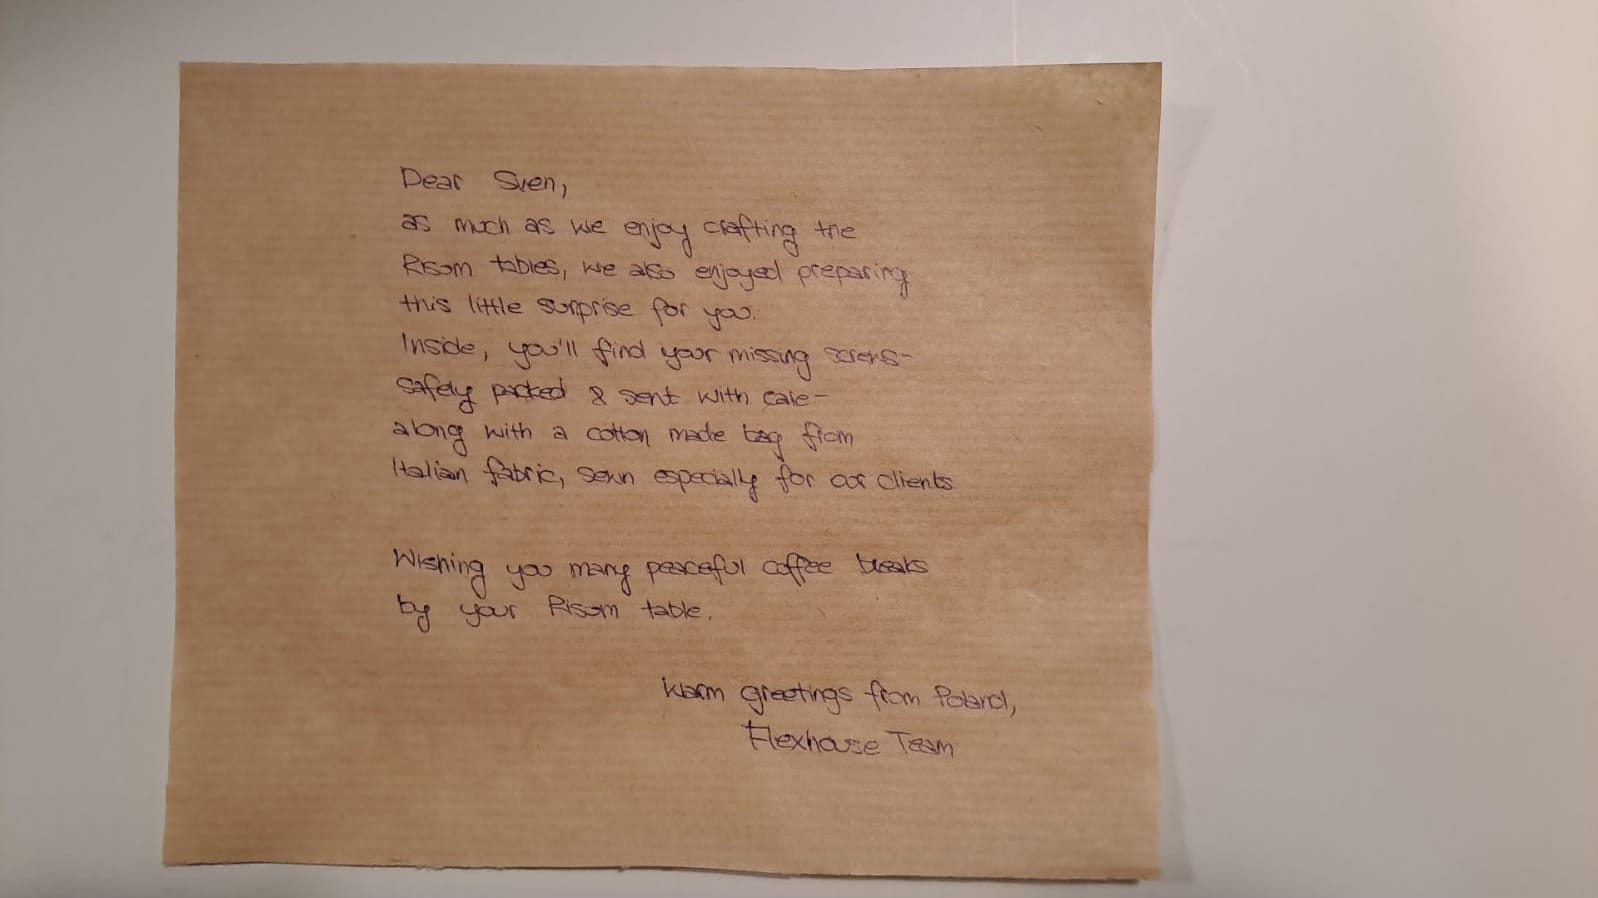 Dear Sven,
as much as we enjoy crafting the
Risom tables, we also enjoyed preparing
this little surprise for you.
Inside, you'll find your missing screws-
safely packed & sent with care-
along with a cotton made bag from
Italian fabric, sewn especially for our clients
Wishing you many peaceful coffee breaks
by your Risom table.
Warm greetings from Poland,
Flexhouse Team